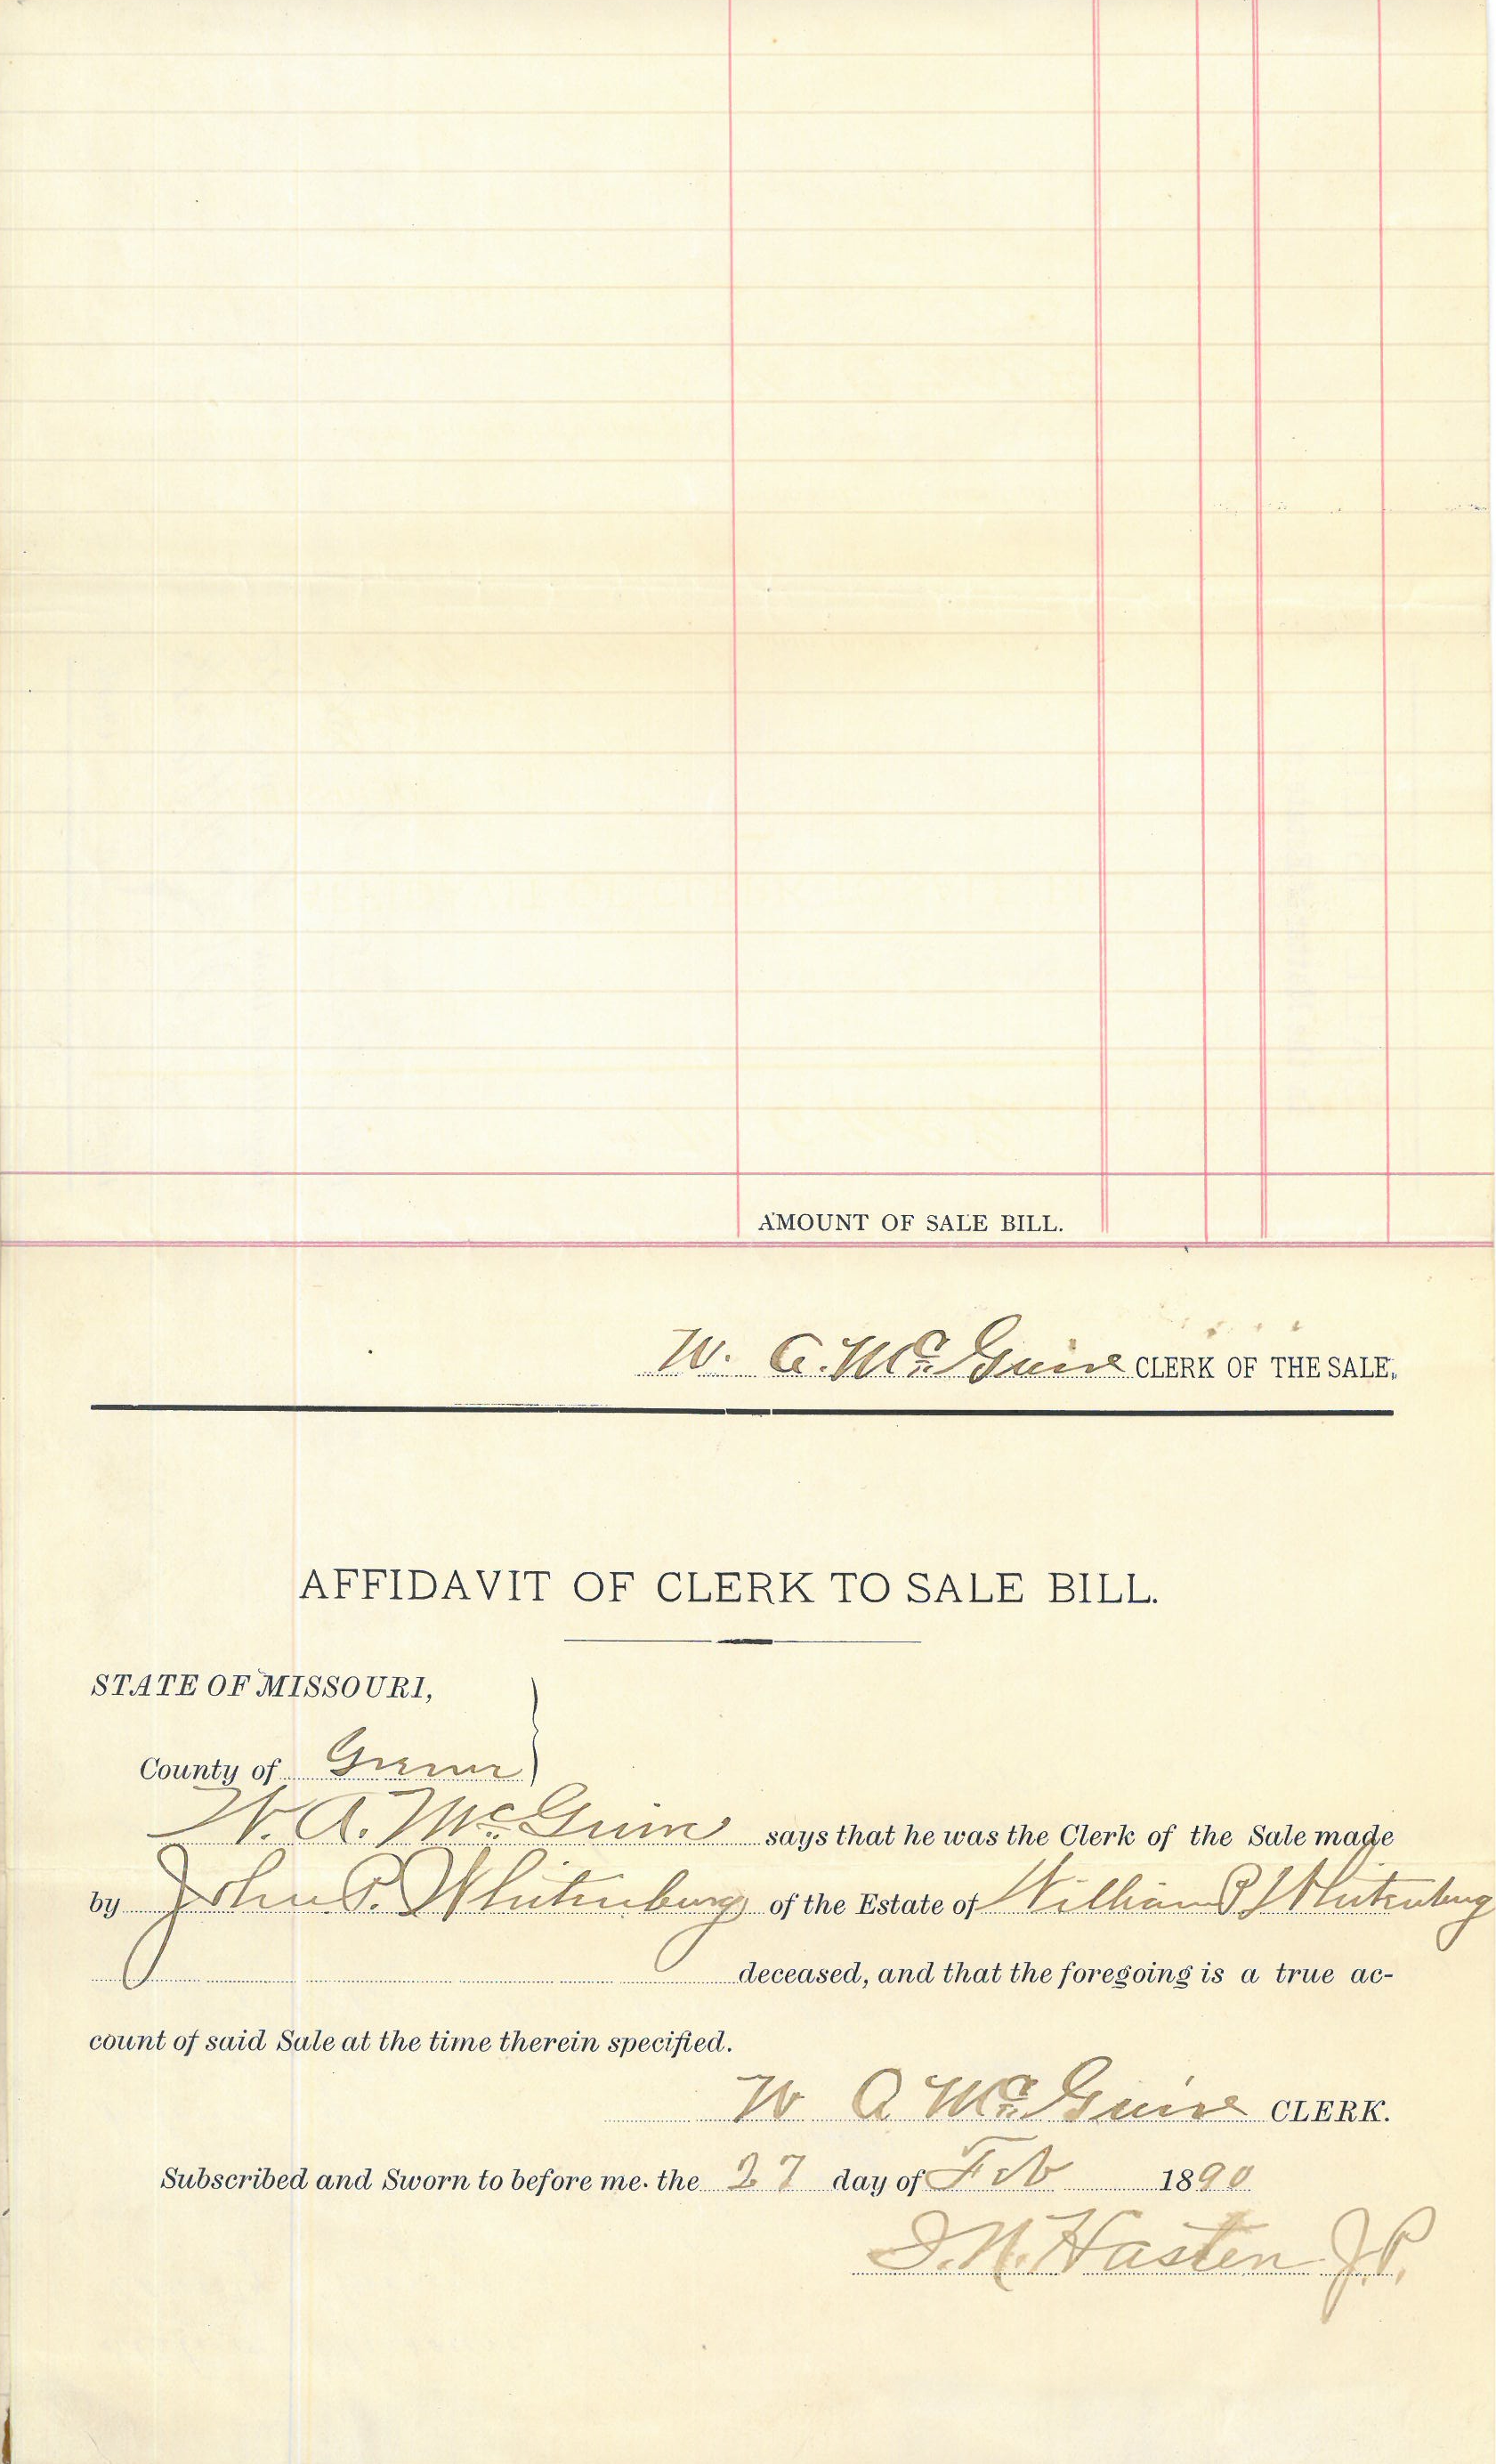 AMOUNT OF SALE BILL.
W. A. McGuire CLERK OF THE SALE,
AFFIDAVIT OF CLERK TO SALE BILL.
STATE OF MISSOURI,
County of Greene
W. A. McGuire says that he was the Clerk of the Sale made
by John P. Whitenburg of the Estate of William P Whitenburg
deceased, and that the foregoing is a true ac-
count of said Sale at the time therein specified.
W A McGuire CLERK.
Subscribed and Sworn to before me. the 27 day of Feb 1890
I. N. Hasten J.P.